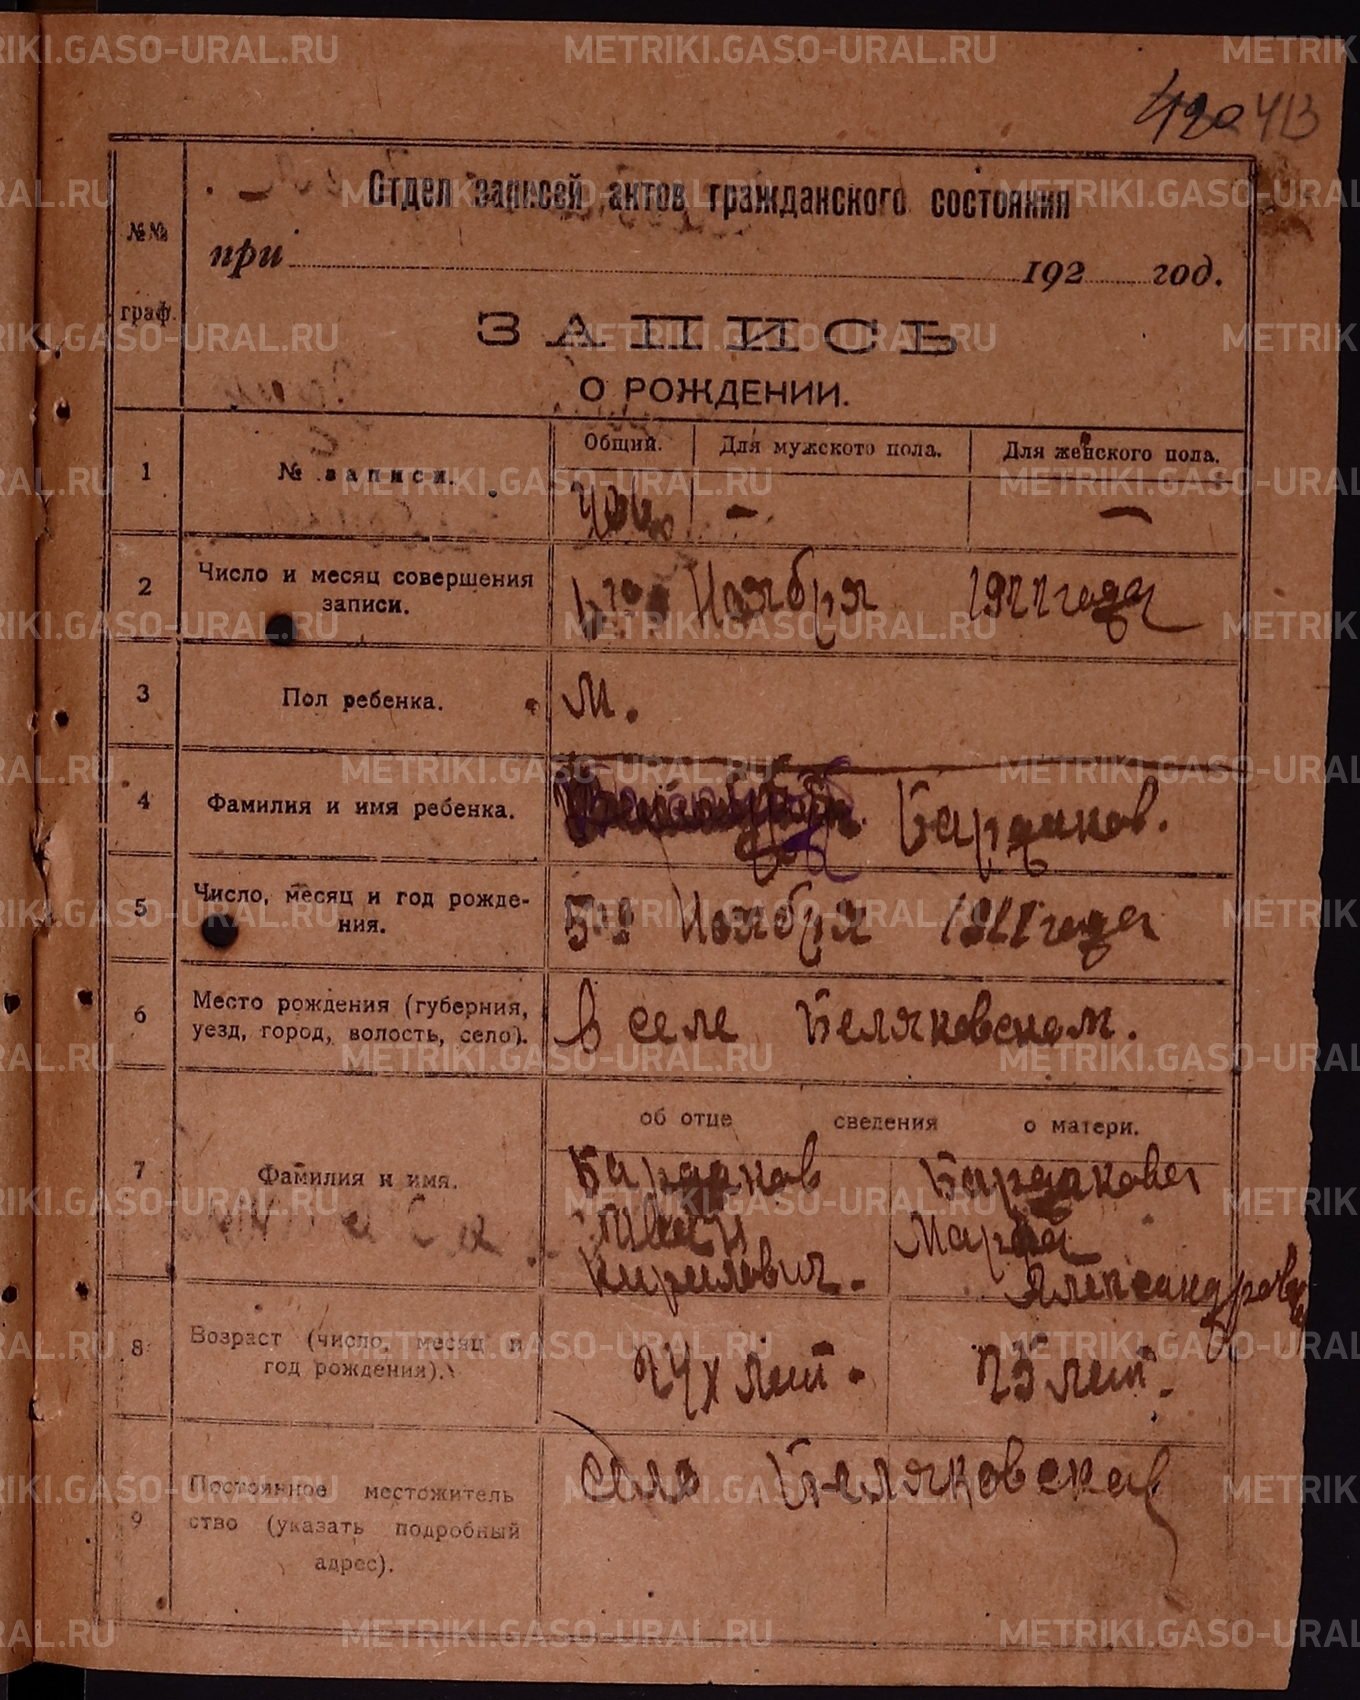 420 413
Отдел записей актов гражданского состояния
№№
граф.
при 192 год.
ЗАПИСЬ
О РОЖДЕНИИ.
Общий. Для мужского пола. Для женского пола.
1 № записи. - -
2 Число и месяц совершения
записи.
Ноября 1922 года
3 Пол ребенка. М.
4 Фамилия и имя ребенка. Бардаков.
5 Число, месяц и год рожде-
ния.
5го Ноября 1922 года
6 Место рождения (губерния,
уезд, город, волость, село).
в селе Беляковском.
об отце сведения о матери.
7 Фамилия и имя.
Бардаков Бардакова
Мария
Кирилович. Александровна
8 Возраст (число, месяц и
год рождения).
24х лет. 25 лет.
9 Постоянное местожитель
ство (указать подробный
адрес).
село Беляковское
METRIKI.GASO-URAL.RU